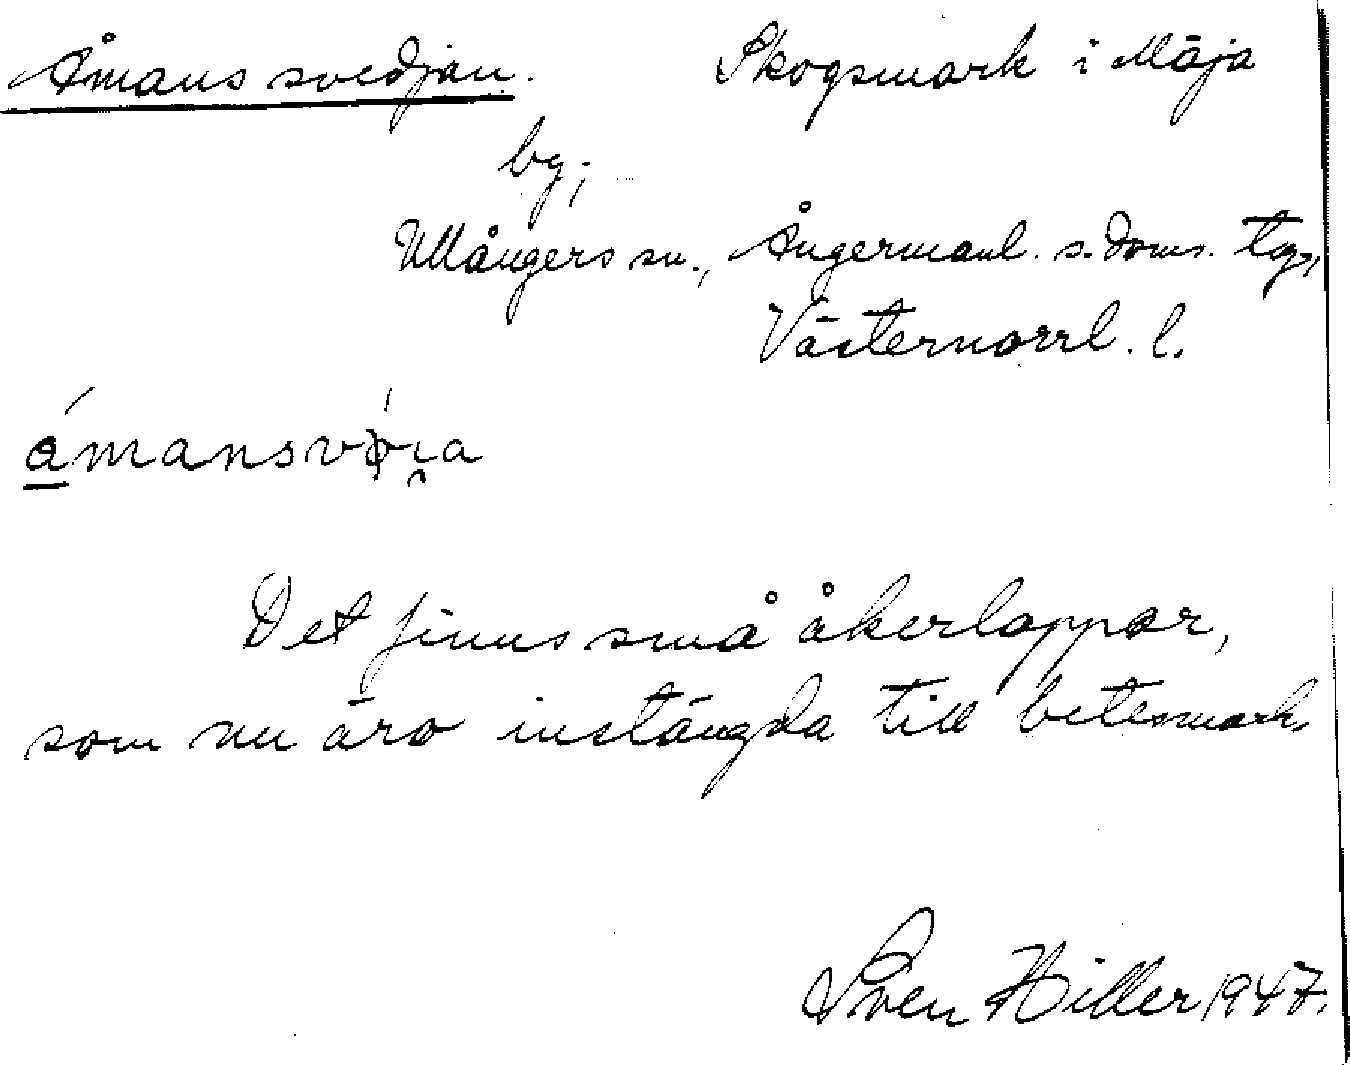 Åmans svedjan. Skogsmark i Mäja
by;
Ullångers sn., Ångermanl. s. doms. tg.,
Västernorrl. l.
Det finns små åkerlappar,
som nu äro instängda till betesmark.
Sven Hiller 1947.